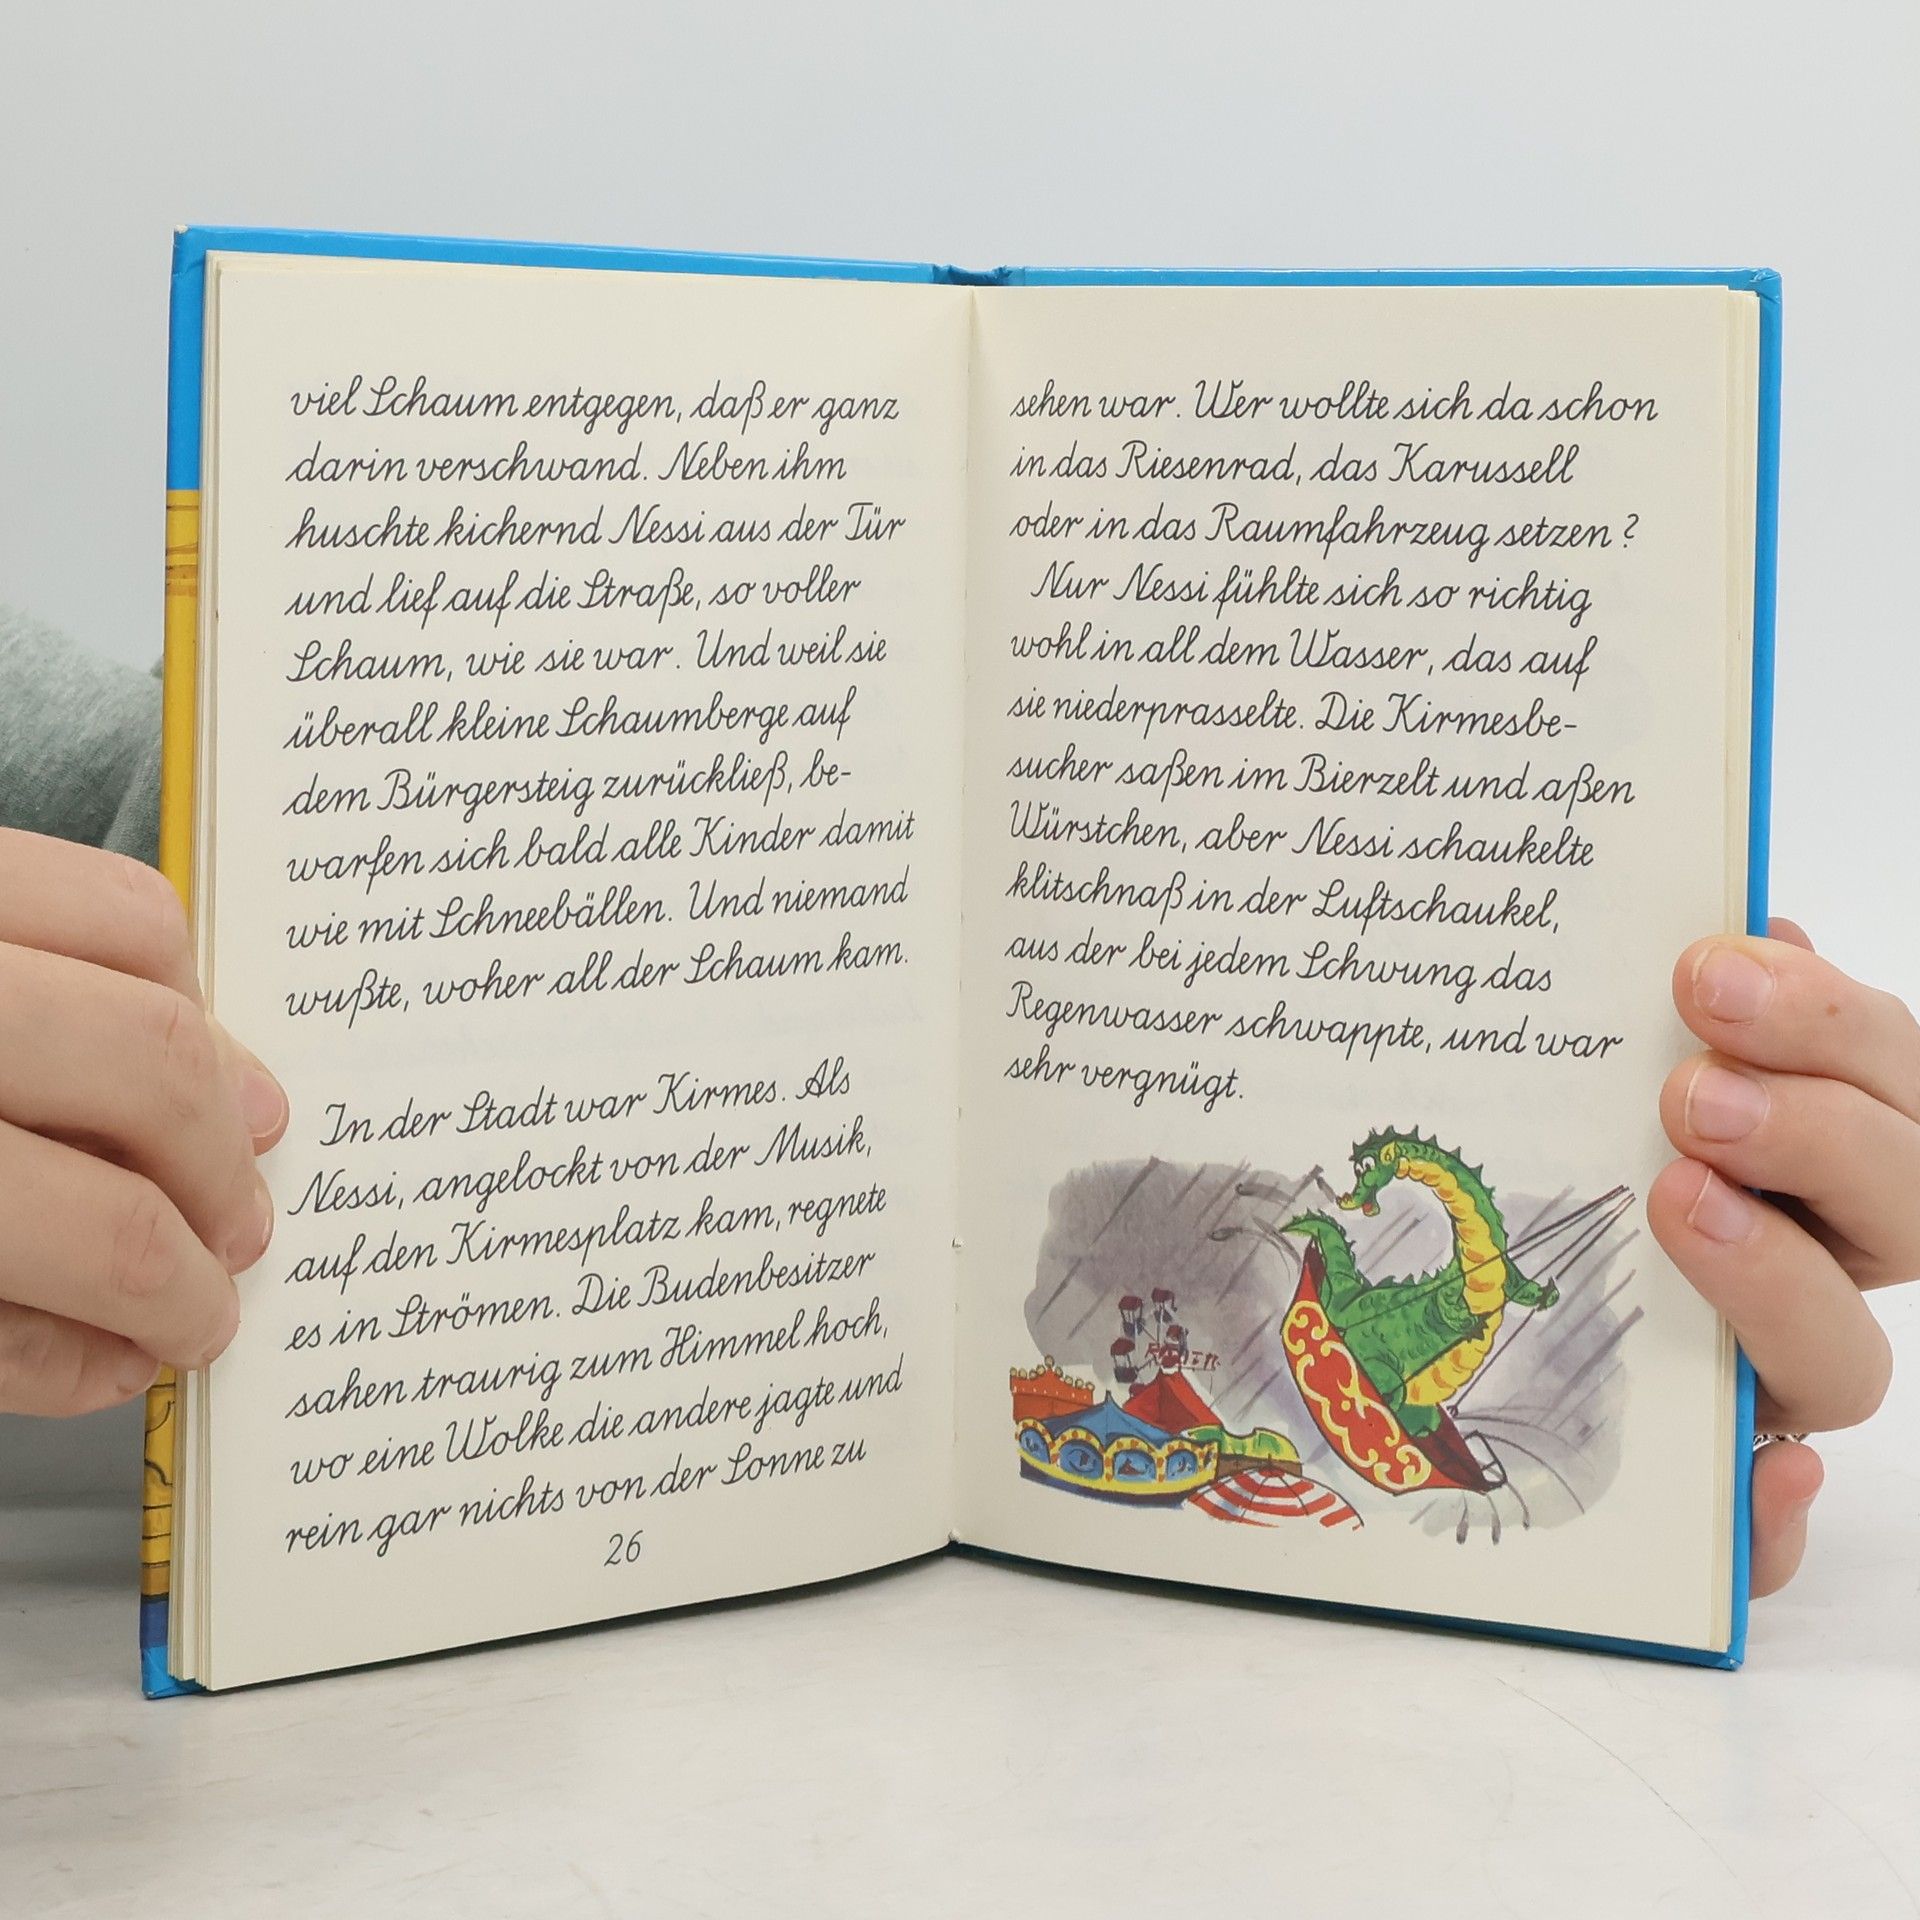 viel Schaum entgegen, daß er ganz
darin verschwand. Neben ihm
huschte kichernd Nessi aus der Tür
und lief auf die Straße, so voller
Schaum, wie sie war. Und weil sie
überall kleine Schaumberge auf
dem Bürgersteig zurückließ, be-
warfen sich bald alle Kinder damit
wie mit Schneebällen. Und niemand
wußte, woher all der Schaum kam.
In der Stadt war Kirmes. Als
Nessi, angelockt von der Musik,
auf den Kirmesplatz kam, regnete
es in Strömen. Die Budenbesitzer
sahen traurig zum Himmel hoch,
wo eine Wolke die andere jagte und
rein gar nichts von der Sonne zu
26
sehen war. Wer wollte sich da schon
in das Riesenrad, das Karussell
oder in das Raumfahrzeug setzen?
Nur Nessi fühlte sich so richtig
wohl in all dem Wasser, das auf
sie niederprasselte. Die Kirmesbe-
sucher saßen im Bierzelt und aßen
Würstchen, aber Nessi schaukelte
klitschnaß in der Luftschaukel,
aus der bei jedem Schwung das
Regenwasser schwappte, und war
sehr vergnügt.